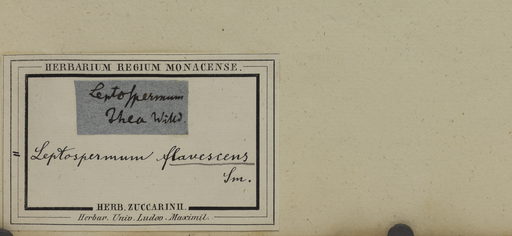 HERBARIUM REGIUM MONACENSE.
Leptospermum
Thea Willd.
Leptospermum flavescens
Sm.
HERB. ZUCCARINII.
Herbar. Univ. Ludov. Maximil.